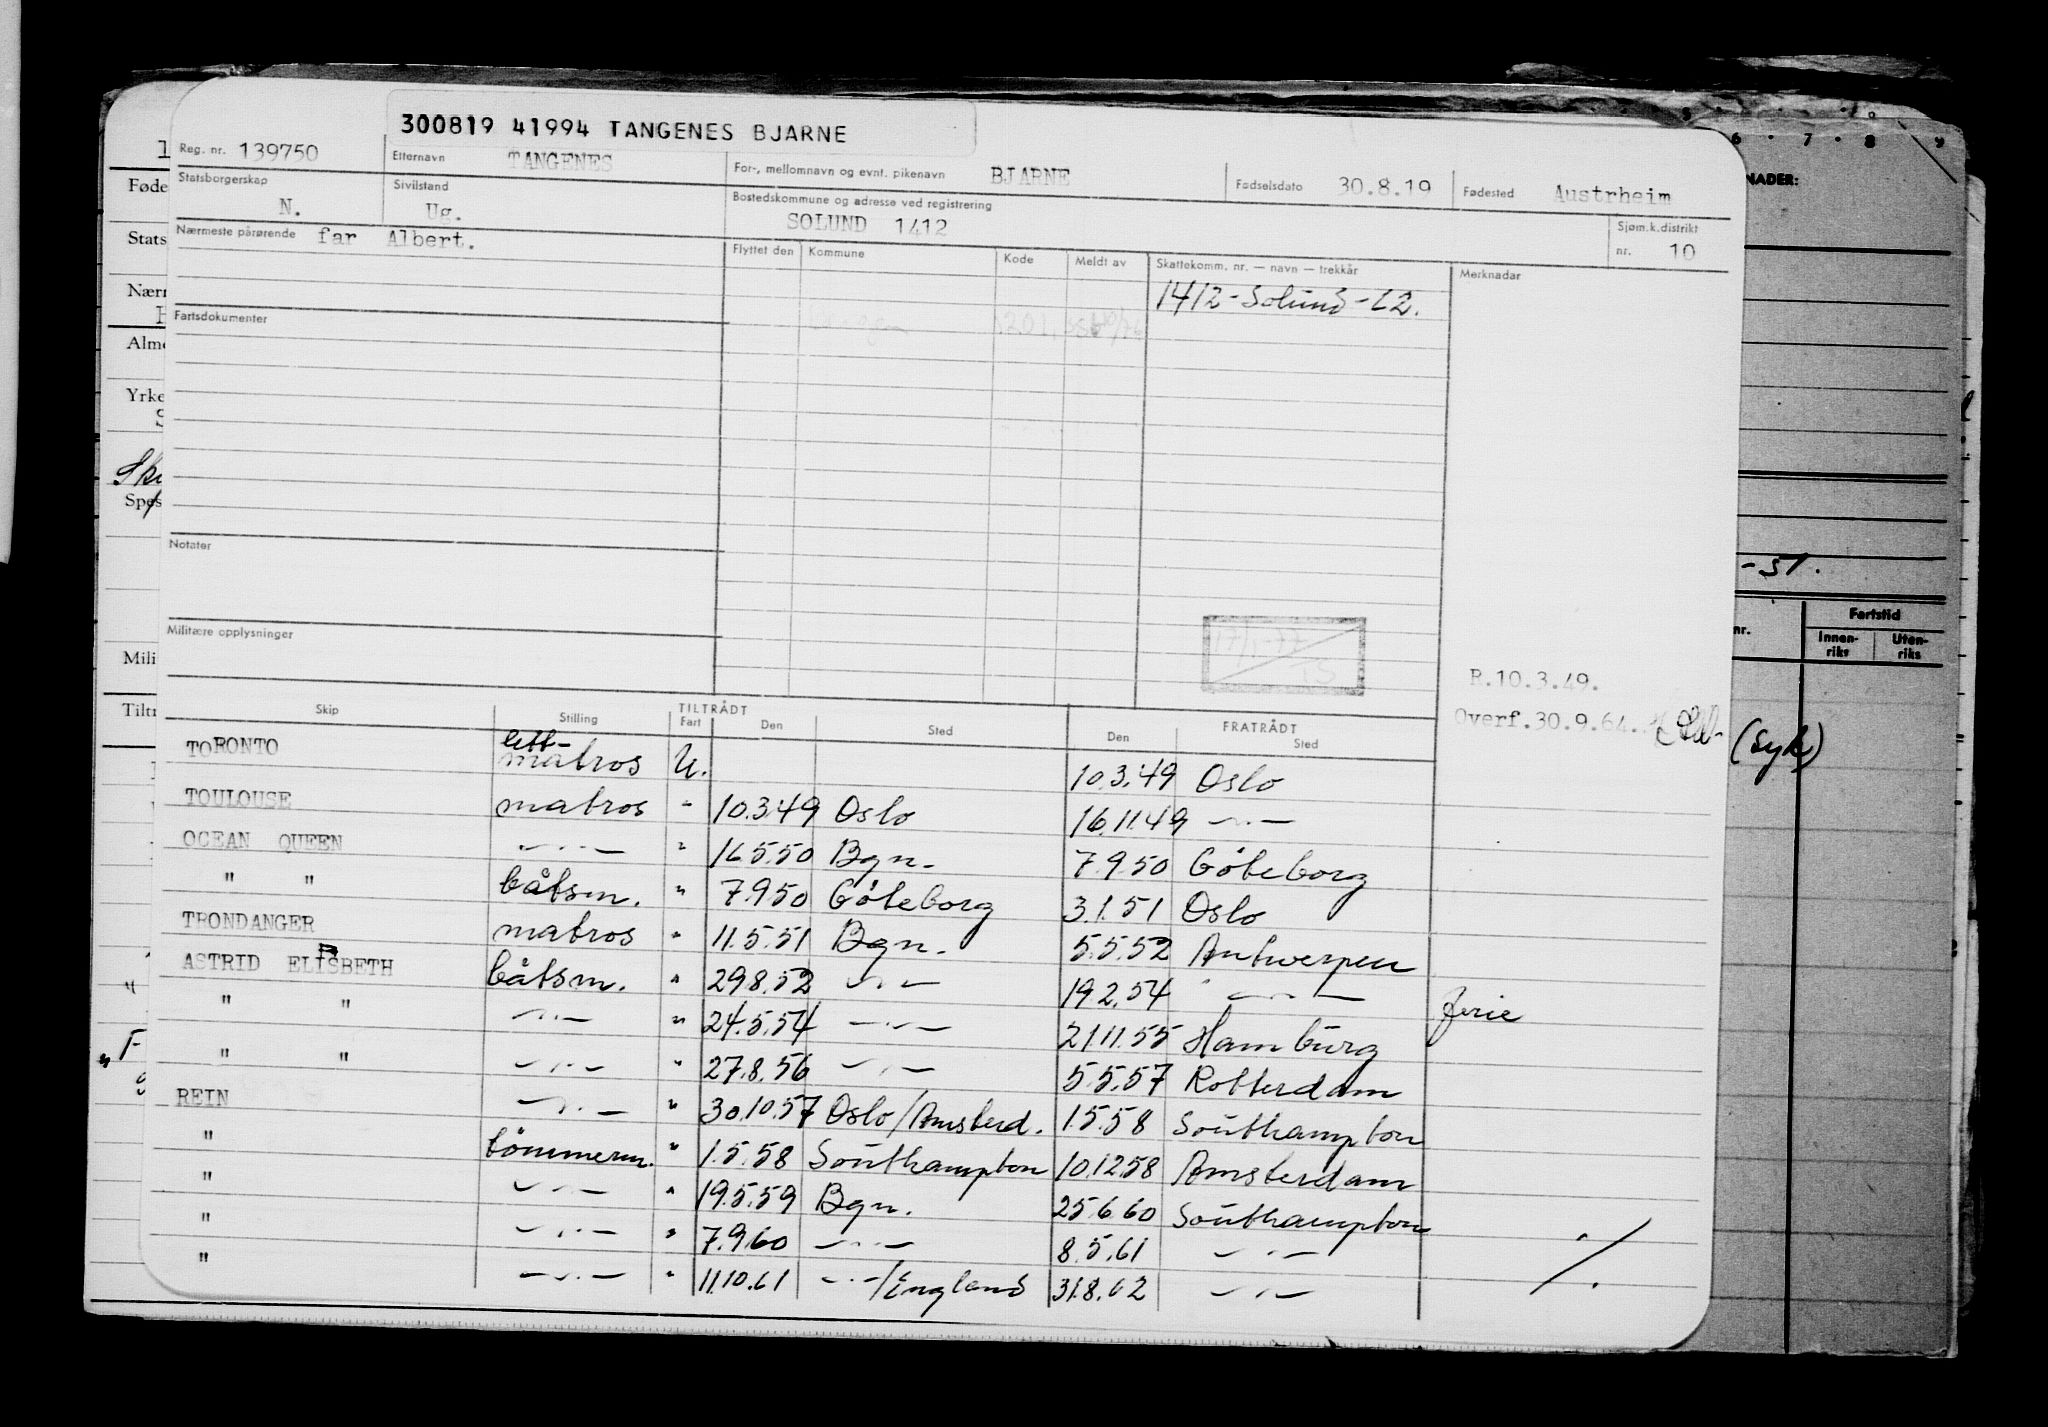 300819 41994 TANGENES BJARNE
Reg. nr. 139750 Etternavn TANGENES For-, mellomnavn og evnt. pikenavn BJARNE Fødselsdato 30.8.19 Fødested Austrheim
Statsborgerskap N. Sivilstand Ug. Bostedskommune og adresse ved registrering SOLUND 1412 Sjøm.k.distrikt nr. 10
Nærmeste pårørende far Albert. Flyttet den Kommune Kode Meldt av Skattekomm. nr. — navn — trekkår Merknader
1412-Solund-62.
Fartsdokumenter
Notater
17/1-77 TS
Militære opplysninger
R.10.3.49.
Overf.30.9.64.
Skip Stilling TILTRÅDT Fart Den Sted FRATRÅDT Den Sted
TORONTO lett-matros U. 10.3.49 Oslo
TOULOUSE matros " 10.3.49 Oslo 16.11.49 —"—
OCEAN QUEEN —"— " 16.5.50 Bgn. 7.9.50 Göteborg
" " båtsm. " 7.9.50 Göteborg 3.1.51 Oslo
TRONDANGER matros " 11.5.51 Bgn. 5.5.52 Antwerpen
ASTRID ELISBETH båtsm. " 29.8.52 —"— 19.2.54 —"— ferie
" " —"— " 24.5.54 —"— 21.11.55 Hamburg
" " —"— " 27.8.56 —"— 5.5.57 Rotterdam
REIN —"— " 30.10.57 Oslo/Amsterd. 1.5.58 Southampton
" tömmerm. " 1.5.58 Southampton 10.12.58 Amsterdam
" —"— " 19.5.59 Bgn. 25.6.60 Southampton
" —"— " 7.9.60 —"— 8.5.61 —"—
" —"— " 11.10.61 —"—/England 31.8.62 —"—
./.
Føde
Stats
Nærn
Alme
Yrke
Spes
Mili
Tiltr
6 · 7 · 8 · 9
NADER:
-51.
nr. Fartstid
Innen-riks Uten-riks
(syk)